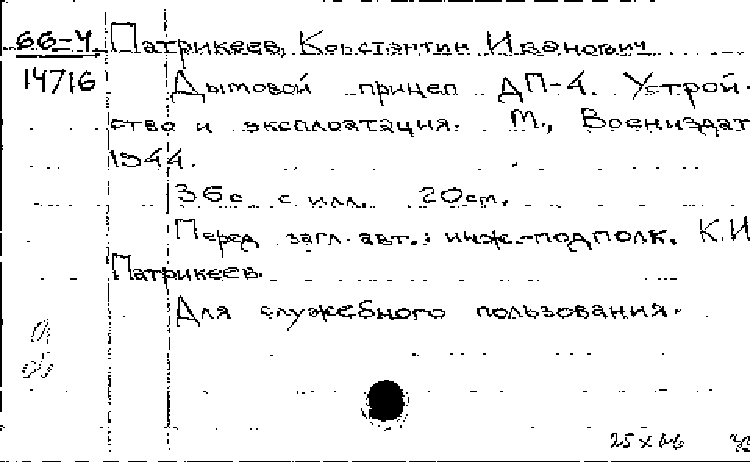 66-4. Патрикеев, Константин Иванович
14716 Дымовой прицеп ДП-4. Устрой-
ство и эксплоатация. М., Воениздат
1944.
36 с. с илл. 20 см.
Перед загл. авт.: инж.-подполк. К.И
Патрикеев.
Для служебного пользования.